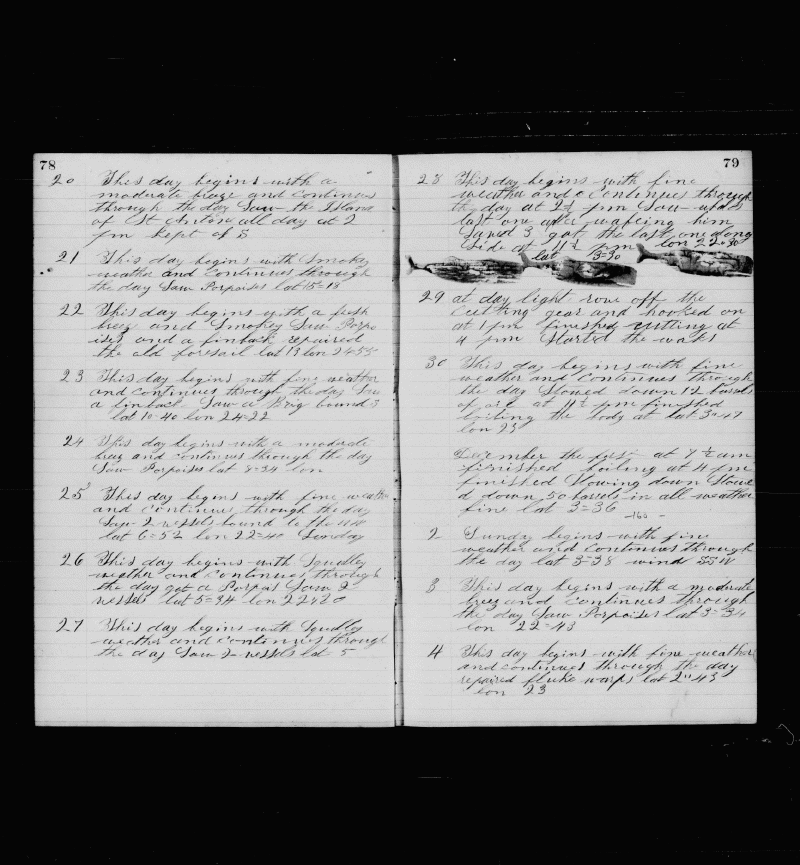 78
20 This day begins with a
moderate breze and continues
through the day Saw the Island
of St Antone all day at 2
pm kept of S
21 This day begins with Smokey
weather and continues through
the day Saw Porpoises lat 15-18
22 This day begins with a fresh
breez and Smokey Saw Porpo
ises and a finback repaired
the old foresail lat 13 lon 24-55
23 This day begins with fine weather
and continues through the day Saw
a finback Saw a Brig bound S
lat 10-40 lon 24=22
24 This day begins with a moderate
breez and continues through the day
Saw Porpoises lat 8-34 lon
25 This day begins with fine weather
and continues through the day
Saw 2 vessels bound to the
lat 6=52 lon 22=40 Sunday
26 This day begins with Squalley
weather and continues through
the day got a Porpois Saw 2
vessels lat 5=34 lon 22
27 This day begins with Squalley
weather and continues through
the day Saw 2 vessels lat 5
79
28 This day begins with fine
weather and continues through
the day at 2½ pm Saw and
last one after him
3 got the last one along
side at 11½ pm lon 22=30
lat 3=30
29 at day light rove off the
cutting gear and hooked on
at 1 pm finished cutting at
4 pm Started the works
30 This day begins with fine
weather and continues through
the day Stowed down 12 barels
of at 11½ pm finished
boiling the body at lat 3=47
lon 23
December the first at 7½ am
finished boiling at 4 pm
finished Stowing down Stowe
d down 50 barels in all weather
fine lat 3=36
-160-
2 Sunday begins with fine
weather and continues through
the day lat 3=38 wind SSW
3 This day begins with a moderate
breez and continues through
the day Saw Porpoises lat 3=34
lon 22=43
4 This day begins with fine weather
and continues through the day
repaired fluke warps lat 2"43
lon 23